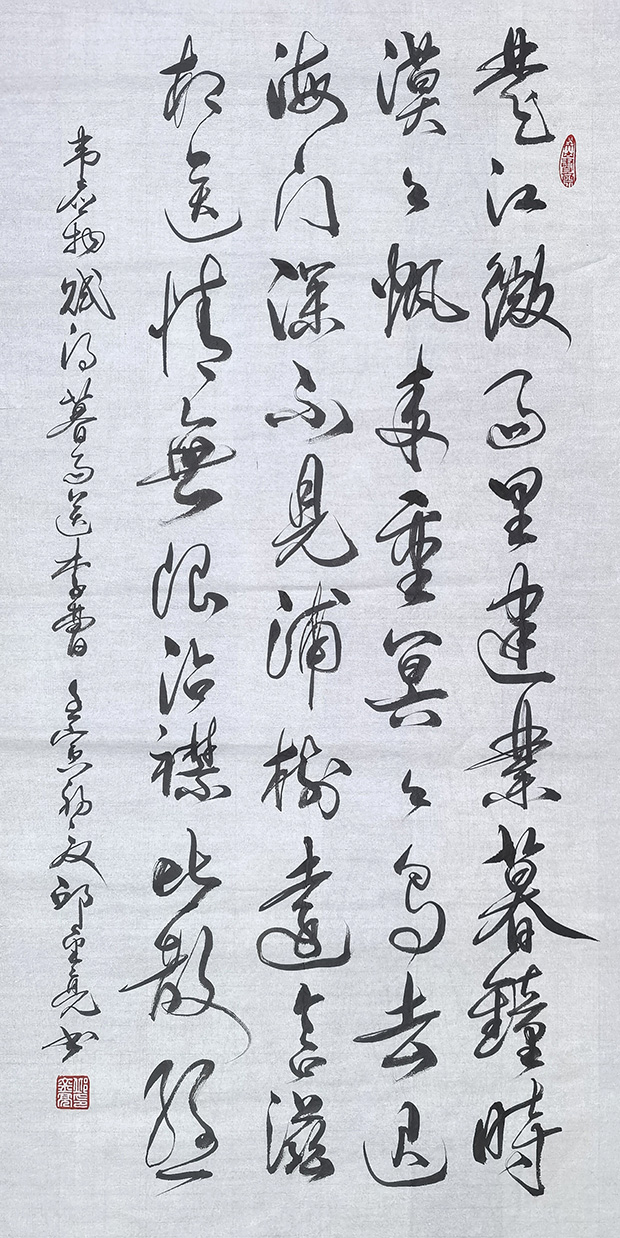 楚江微雨里建业暮鐘時
漠々帆来重冥々鸟去迟
海门深不見浦樹遠含滋
相送情無限沾襟比散丝
韦应物赋得暮雨送李曹 壬寅初夏邱亮书